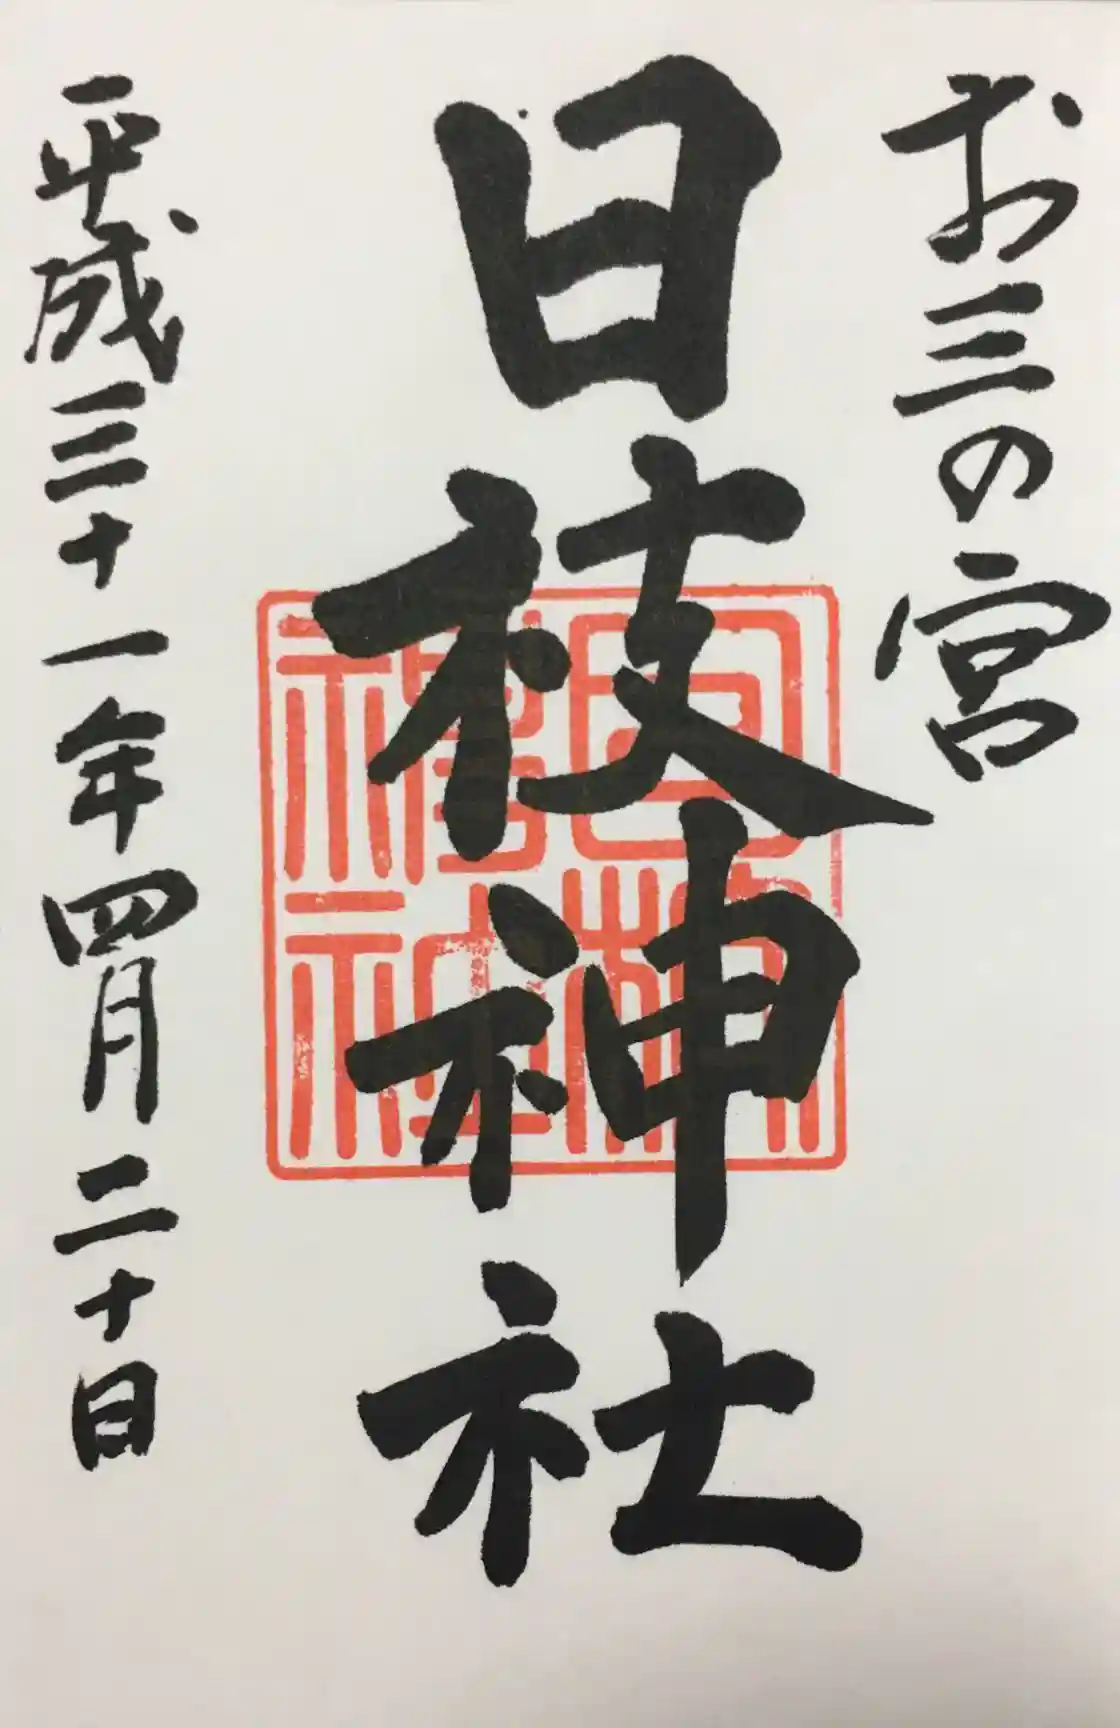 お三の宮
日枝神社
平成三十一年四月二十日
日枝神社